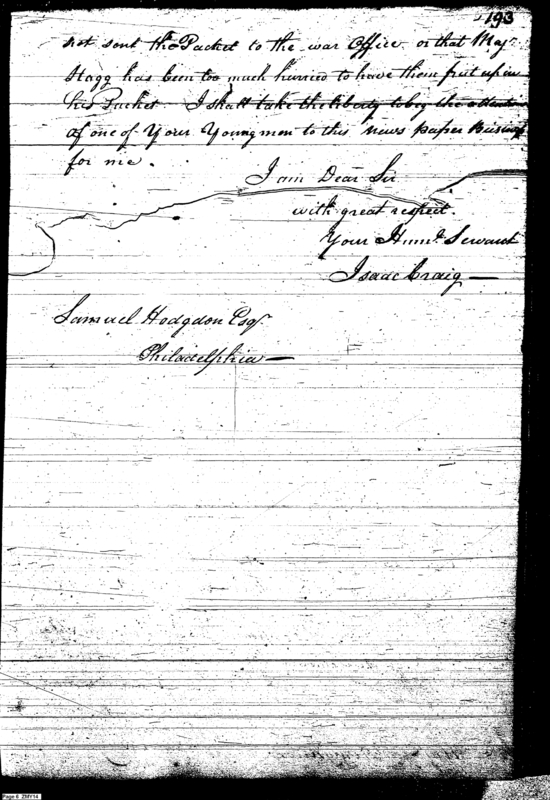 193
not sent the Packet to the war Office or that Majr
Stagg has been too much hurried to have them put up in
his Packet I shall take the liberty to beg the attention
of one of Your Young men to this news paper Business
for me.
I am Dear Sir
with great respect.
Your Humb Servant
Isaac Craig
Samuel Hodgdon Esqr
Philadelphia
Page 6 ZMY14